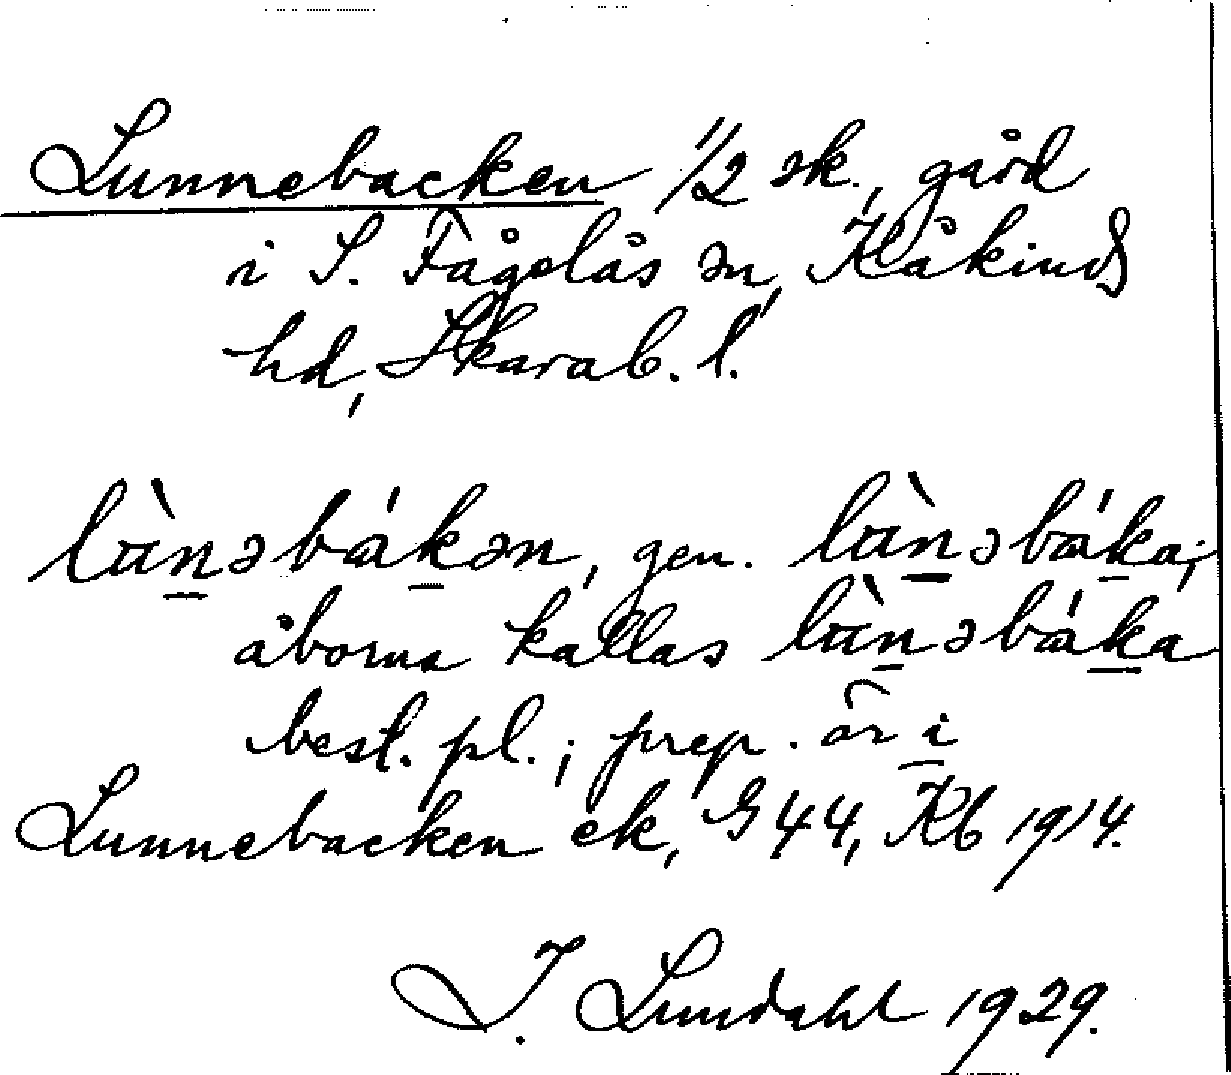 Lunnebacken 1/2 sk., gård
i S. Fågelås sn, Kåkinds
hd, Skarab. l.
lùnəbákən, gen. lùnəbáka;
åborna kallas lùnəbáka
best. pl.; prep. är i
Lunnebacken ek, G 44, Kb 1914.
I. Lundahl 1929.